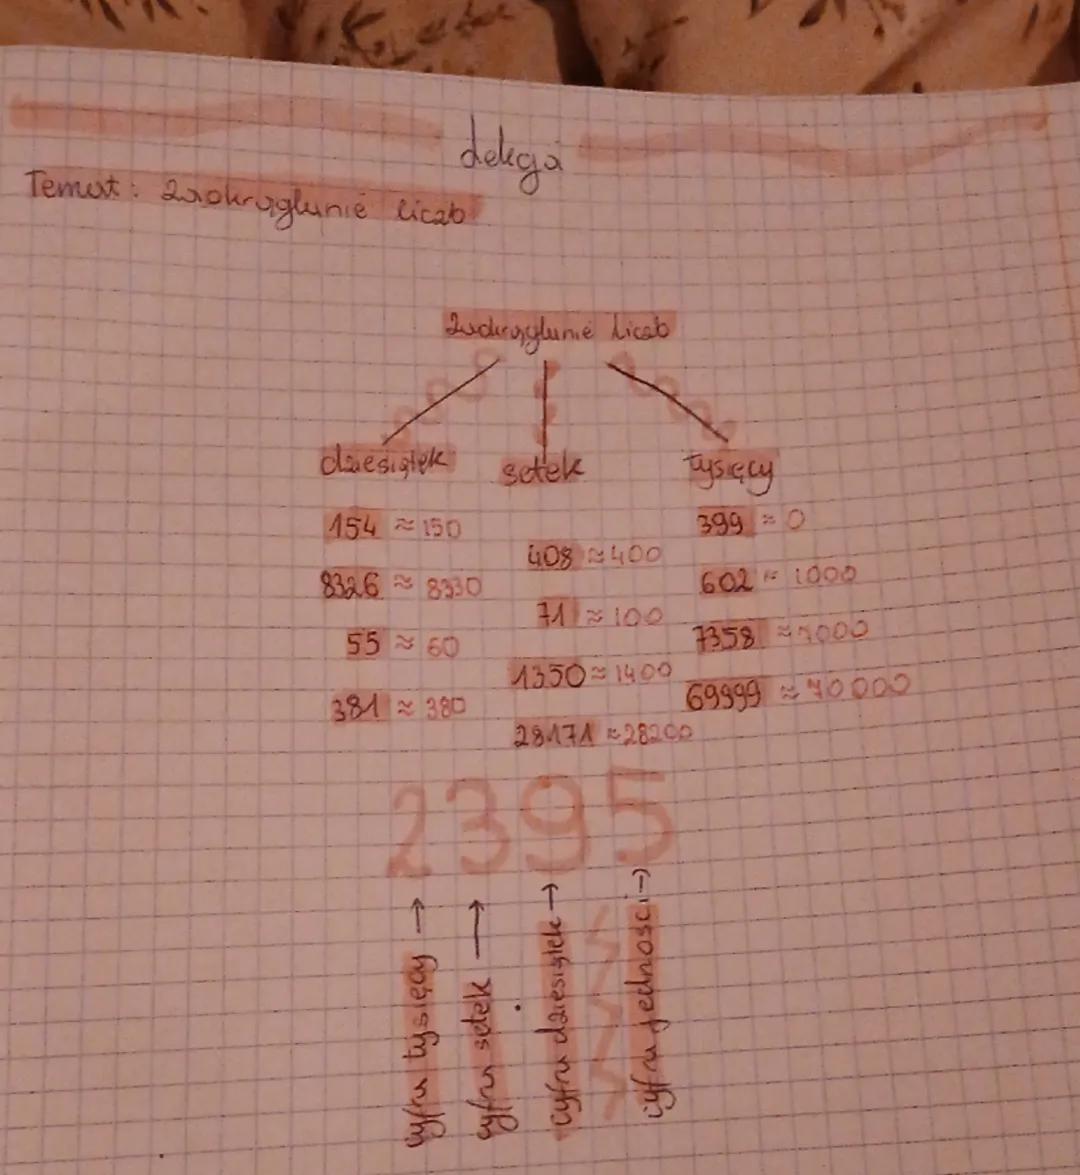 Lekcja
Temat: Zaokrąglanie liczb
Zaokrąglanie liczb
dziesiątek setek tysięcy
154 ≈ 150
8326 ≈ 8330
55 ≈ 60
381 ≈ 380
408 ≈ 400
71 ≈ 100
1350 ≈ 1400
28171 ≈ 28200
399 ≈ 0
602 ≈ 1000
7358 ≈ 7000
69999 ≈ 70000
2395
cyfra tysięcy →
cyfra setek →
cyfra dziesiątek →
cyfra jedności →